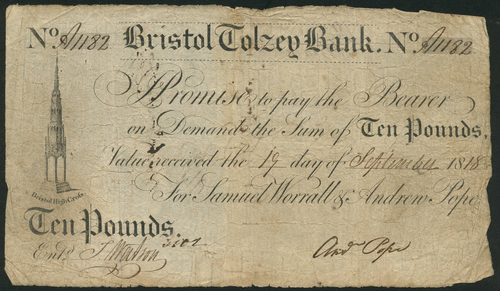 No. A1182 Bristol Tolzey Bank. No. A1182
I Promise to pay the Bearer
on Demand the Sum of Ten Pounds.
Value received the 19 day of September 1818
For Samuel Worrall & Andrew Pope
Bristol High Cross.
Ten Pounds.
Entd. Watson And Pope